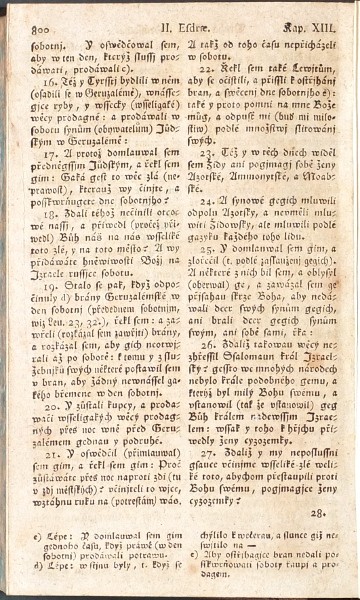 800
II. Esdræ.
Kap. XIII.
sobotnj. Y oswědčowal sem,
aby w ten den, kterýž slussj pro-
dáwati, prodáwali c).
16. Též y Tyrssj bydlili w něm
(osadili se w Geruzalémě), wnásse-
gjce ryby, y wssecky (wsseligaké)
wěcy prodagné: a prodáwali w
sobotu synům (obywatelům) Jůd-
ským w Geruzalémě:
17. A protož domlauwal sem
přednégssjm Jůdským, a řekl sem
gim: Gaká gest to wěc zlá (ne-
prawost), kterauž wy činjte, a
posskwrňugete dne sobotnjho?
18. Zdali téhož nečinili otco-
wé nassi, a přiwedl (protěž při-
wedl) Bůh nás na nás wsseliké
toto zlé, y na toto město? A wy
přidáwáte hněwiwosti Božj na
Jzraele russjce sobotu.
19. Stalo se pak, když odpo-
činuly d) brány Geruzalémské w
den sobotnj (přededne m sobotnjm,
wiz Lew. 23, 32.), řekl sem: a za-
wřeli (rozkázal sem zawřjti) brány,
a rozkázal sem, aby gich neotwj-
rali až po sobotě: k tomu y z slu-
žebnjků swých některé postawil sem
v bran, aby žádný newnássel ga-
kého břemene w den sobotnj.
20. Y zůstali kupcy, a prodá-
wači wsseligakých wěcy prodag-
ných přes noc wně před Geru-
zalémem gednau y podruhé.
21. Y oswědčil (přimlauwal)
sem gim, a řekl sem gim: Proč
zůstáwáte přes noc naproti zdi (tu
v zdj městských)? včinjteli to wjce,
wztáhnu ruku na (potrestám) wás.
A tak od toho času nepřicházeli
w sobotu.
22. Řekl sem také Lewjtům,
aby se očistili, a přissli k ostřjhánj
bran, a swěcenj dne sobotnjho e):
také y proto pomni na mne Bože
můg, a odpusť mi (buď mi milo-
stiw) podlé množstwj slitowánj
swých.
23. Též y w těch dnech widěl
sem Židy ani pogjmagj sobě ženy
Azotské, Ammonytské, a Moab-
ské.
24. A synowé gegich mluwili
odpolu Azotsky, a neuměli mlu-
witi Židowsky, ale mluwili podlé
gazyku každého toho lidu.
25. Y domlauwal sem gim, a
zlořečil (t. podlé zaslauženj gegich).
A některé z nich bil sem, a oblysyl
(oberwal) ge, a zawázal sem ge
přjsahau skrze Boha, aby nedá-
wali dcer swých synům gegich,
ani brali dcer gegich synům
swým, ani sobě sami, řka:
26. Zdaliž takowau wěcý ne-
zhřessil Ssalomaun král Jzrael-
ský? gessto we mnohých národech
nebylo krále podobného gemu, a
kterýž byl milý Bohu swému, a
vstanowil (tak že vstanowil) geg
Bůh králem nadewssjm Jzrae-
lem: wssak y toho k hřjchu při-
wedly ženy cyzozemky.
27. Zdaliž y my neposlussnj
gsauce včinjme wsseliké-zlé weli-
ké toto, abychom přestaupili proti
Bohu swému, pogjmagjce ženy
cyzozemky?
28.
c) Lépe: Y domlauwal sem gim
gednoho času, když práwě (w den
sobotnj) prodáwali potrawu.
d) Lépe: w stjnu byly, t. když se
chýlilo k wečerau, a slunce giž ne-
swjtilo na —
e) Aby ostřjhagjce bran nedali po-
sskwrňowati soboty kaupj a pro-
dagem.